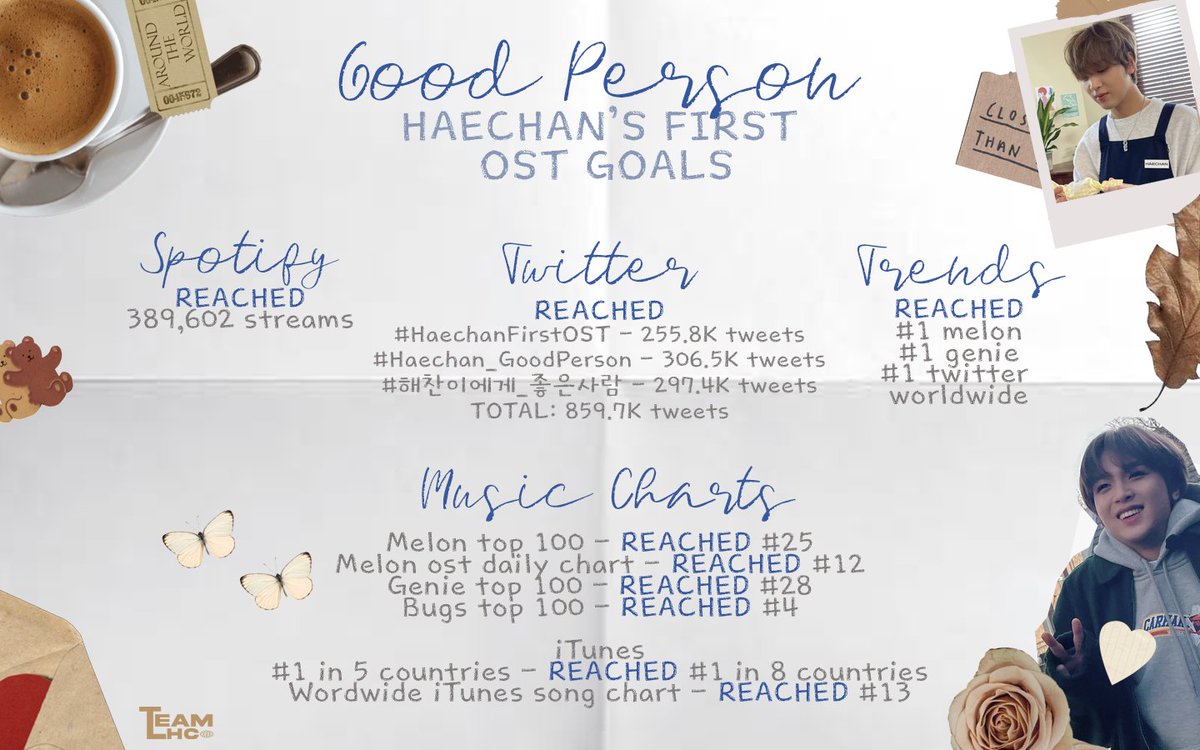 AROUND
THE
WORLD
004672
Good Person
HAECHAN'S FIRST
OST GOALS
CLOS
THAN
HAECHAN
Spotify
REACHED
389,602 streams
Twitter
REACHED
#HaechanFirstOST - 255.8K tweets
#Haechan_GoodPerson - 306.5K tweets
#해찬이에게_좋은사람 - 297.4K tweets
TOTAL: 859.7K tweets
Trends
REACHED
#1 melon
#1 genie
#1 twitter
worldwide
Music Charts
Melon top 100 - REACHED #25
Melon ost daily chart - REACHED #12
Genie top 100 - REACHED #28
Bugs top 100 - REACHED #4
iTunes
#1 in 5 countries - REACHED #1 in 8 countries
Wordwide iTunes song chart - REACHED #13
TEAM
LHC